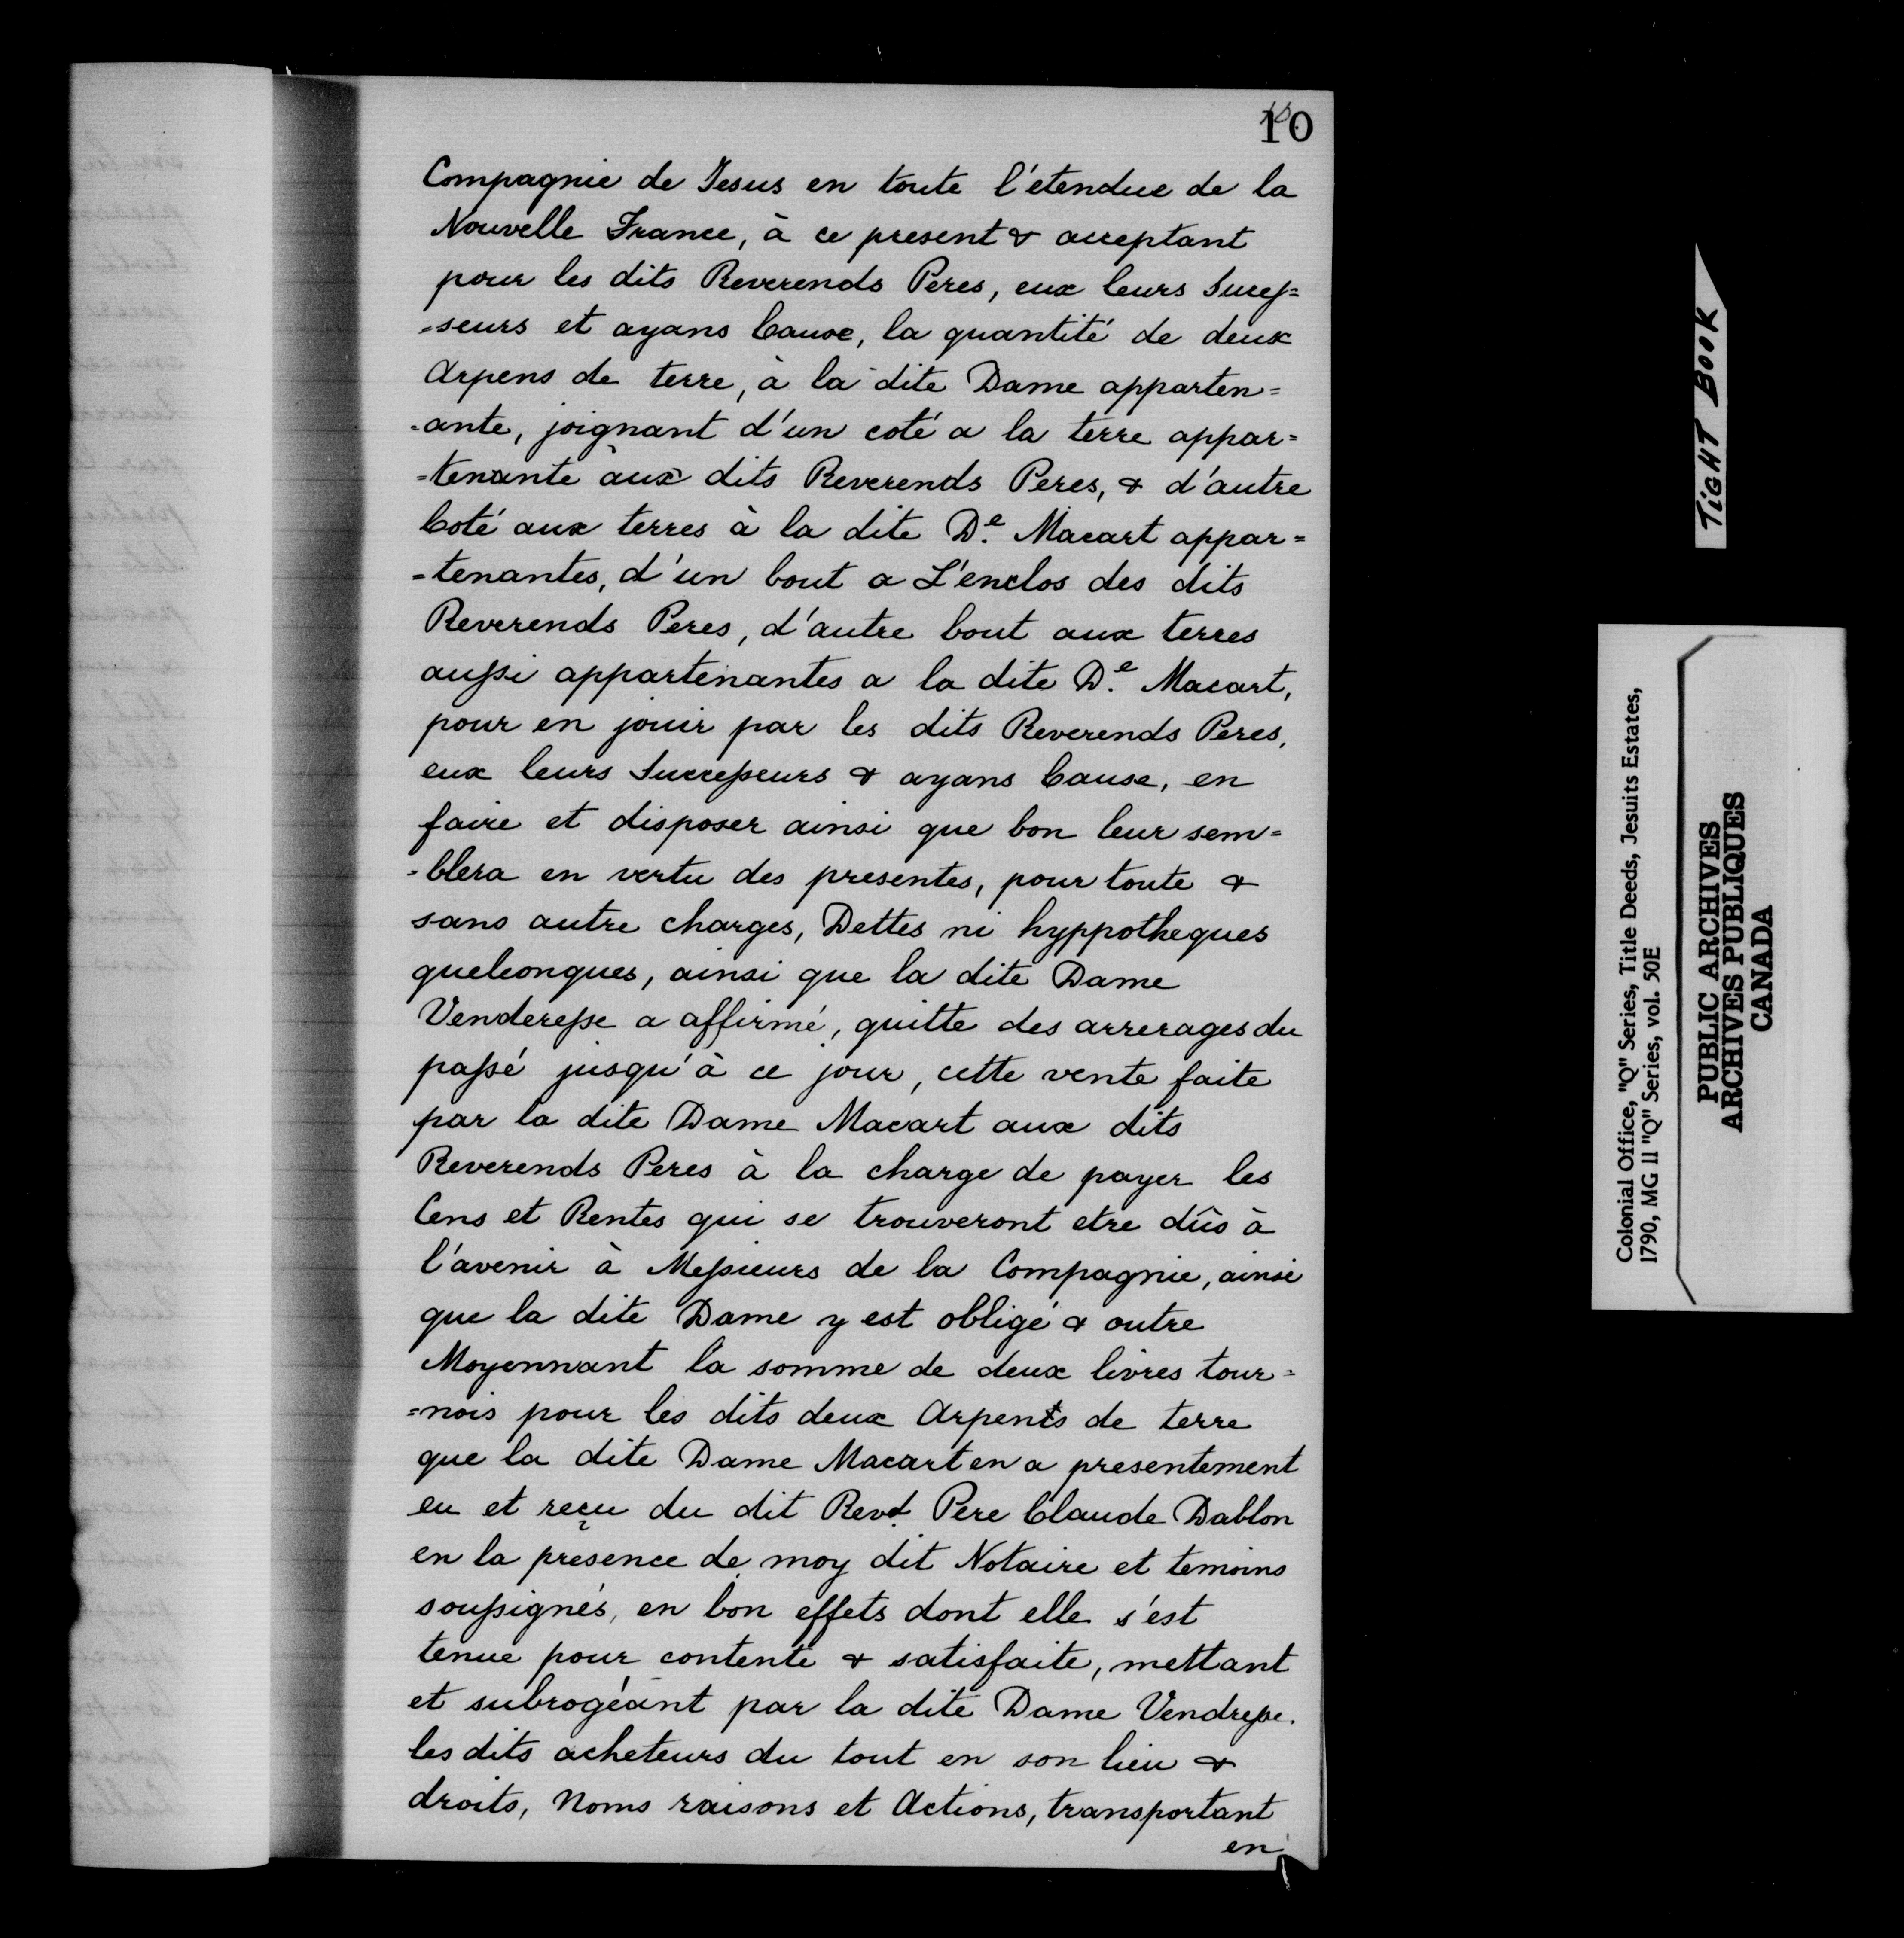 10
Compagnie de Jesus en toute l'étendue de la
Nouvelle France, à ce present & acceptant
pour les dits Reverends Peres, eux leurs Succes=
=seurs et ayans Cause, la quantité de deux
Arpens de terre, à la dite Dame apparten=
=ante, joignant d'un coté a la terre appar=
=tenante aux dits Reverends Peres, & d'autre
Coté aux terres à la dite De. Macart appar=
=tenantes, d'un bout a L'enclos des dits
Reverends Peres, d'autre bout aux terres
aussi appartenantes a la dite De. Macart,
pour en jouir par les dits Reverends Peres,
eux leurs Successeurs & ayans Cause, en
faire et disposer ainsi que bon leur sem=
=blera en vertu des presentes, pour toute &
sans autre charges, Dettes ni hyppotheques
quelconques, ainsi que la dite Dame
Venderesse a affirmé, quitte des arrerages du
passé jusqu'à ce jour, cette vente faite
par la dite Dame Macart aux dits
Reverends Peres à la charge de payer les
Cens et Rentes qui se trouveront etre dûs à
l'avenir à Messieurs de la Compagnie, ainsi
que la dite Dame y est obligé & outre
Moyennant la somme de deux livres tour=
=nois pour les dits deux Arpents de terre
que la dite Dame Macart en a presentement
eu et reçu du dit Revd. Pere Claude Dablon
en la presence de moy dit Notaire et temoins
soussignés, en bon effets dont elle s'est
tenue pour contente & satisfaite, mettant
et subrogéant par la dite Dame Vendresse.
les dits acheteurs du tout en son lieu &
droits, Noms raisons et Actions, transportant
en
TIGHT BOOK
Colonial Office, "Q" Series, Title Deeds, Jesuits Estates,
1790, MG 11 "Q" Series, vol. 50E
PUBLIC ARCHIVES
ARCHIVES PUBLIQUES
CANADA